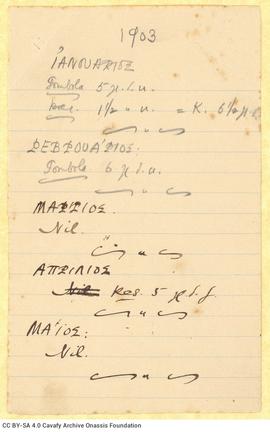 1903
ΙΑΝΟΥΑΡΙΟΣ
Tombola 5 μ.δ.υ.
Res. 1/2 " υ. = Κ. 6 1/2 μ.
ΦΕΒΡΟΥΑΡΙΟΣ:
Tombola 6 μ.δ.υ.
ΜΑΡΤΙΟΣ.
Nil.
ΑΠΡΙΛΙΟΣ
Nil Res. 5 μ.δ.
ΜΑΪΟΣ:
Nil.
CC BY-SA 4.0 Cavafy Archive Onassis Foundation